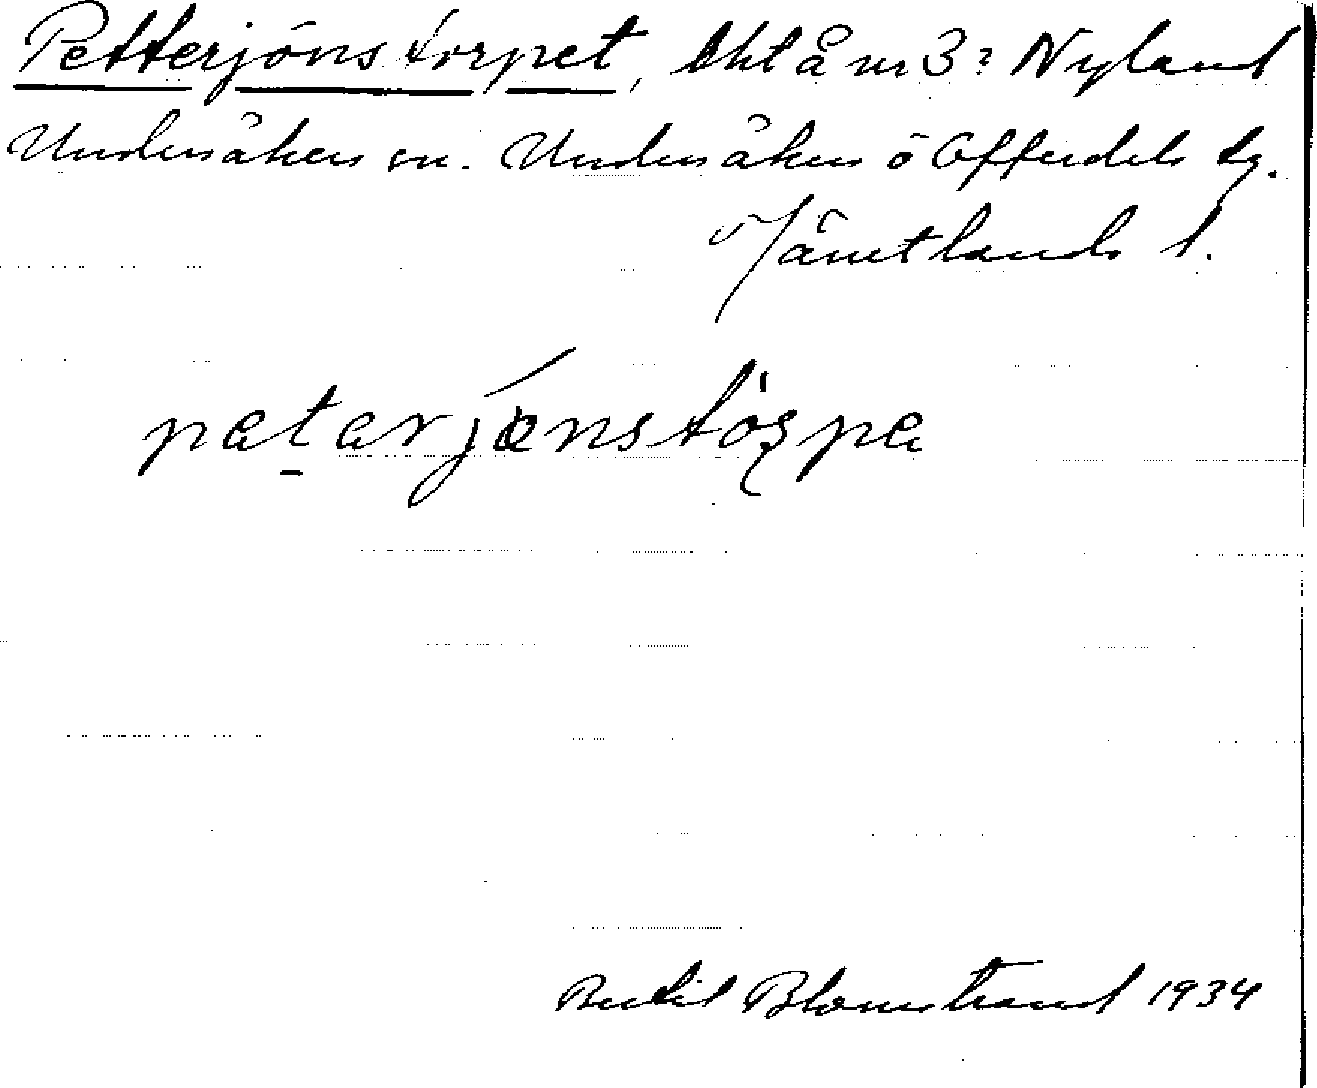 Petterjönstorpet, lht å nr 3? Nyland
Undersåkers sn. Undersåkers o Offerdals tg.
Jämtlands l.
petarjǿnstöṣpa
Bertil Blomstrand 1934